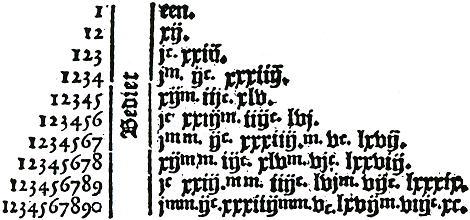 1 een.
12 xij.
123 jᶜ. xxiij.
1234 jᵐ. ijᶜ. xxxiiij.
Bediet
12345 xijᵐ. iijᶜ. xlv.
123456 jᶜ xxiijᵐ. iiijᶜ. lvj.
1234567 jᵐᵐ. ijᶜ. xxxiiij.ᵐ. vᶜ. lxvij.
12345678 xijᵐᵐ. iijᶜ. xlvᵐ. vjᶜ. lxxviij.
123456789 jᶜ xxiij.ᵐᵐ. iiijᶜ. lvjᵐ. vijᶜ. lxxxix.
1234567890 jᵐᵐ.ijᶜ.xxxiiijᵐᵐ.vᶜ.lxvijᵐ.viijᶜ.xc.